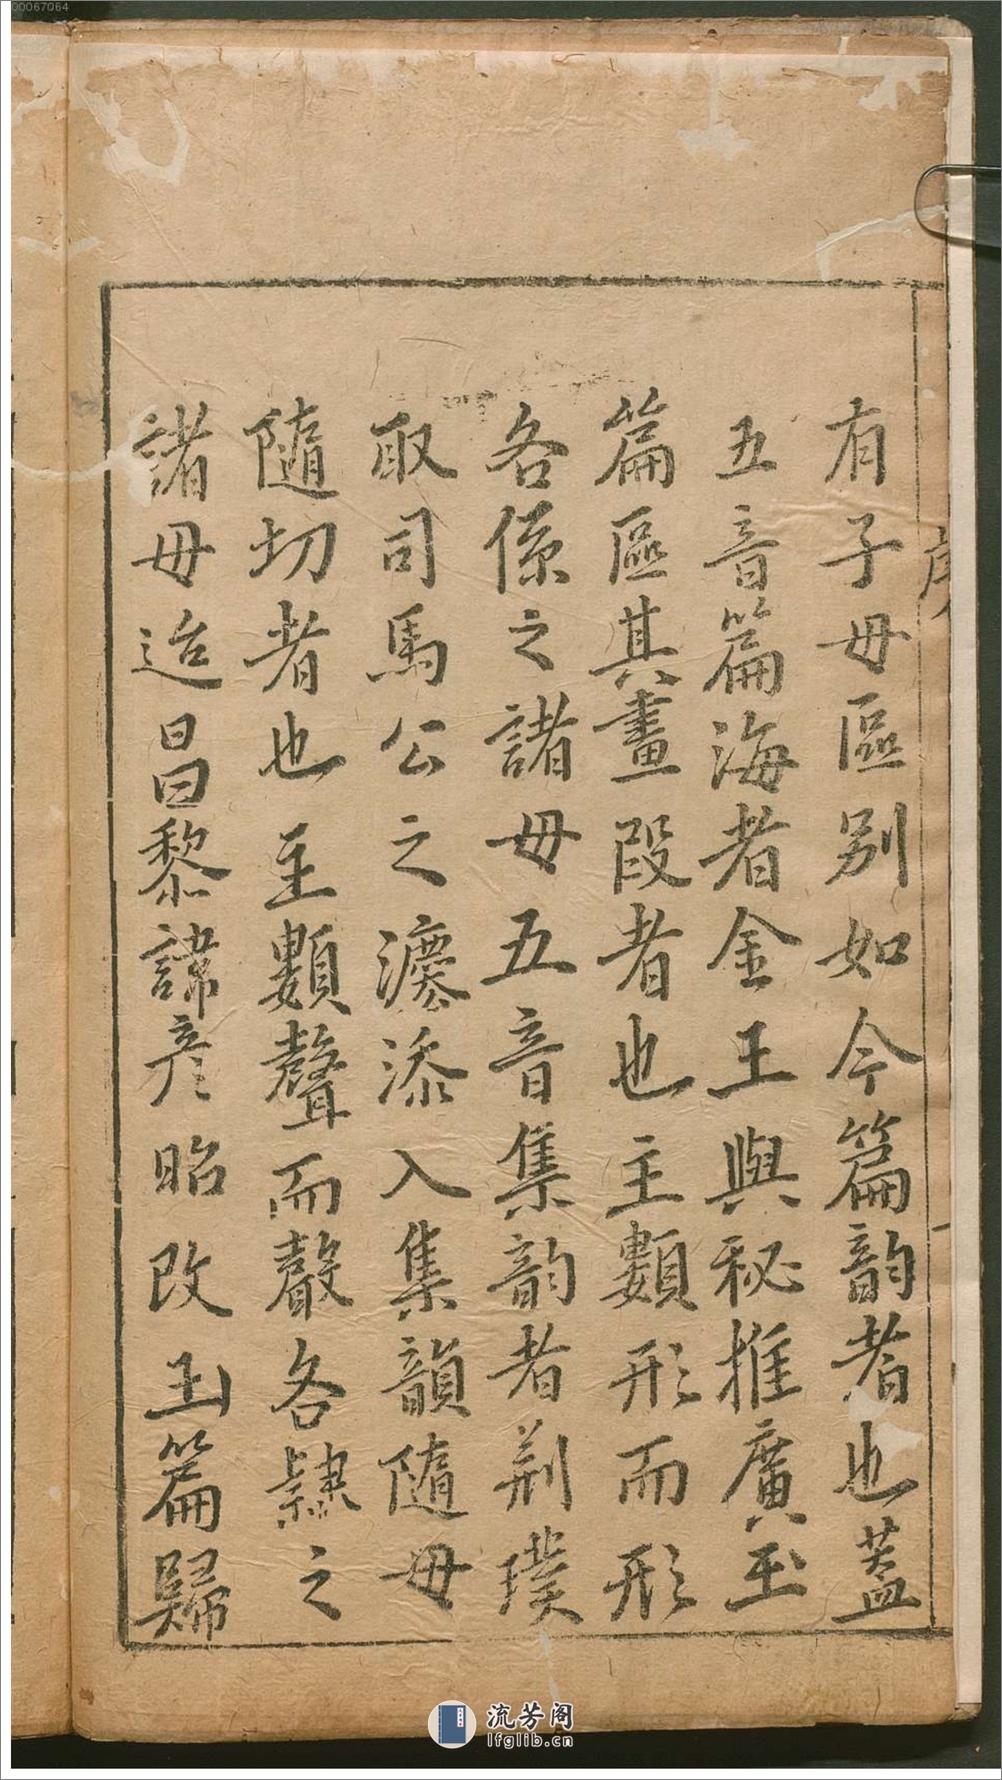 00067064
序
有子母區別如今篇韵者也蓋
五音篇海者金王與秘推廣玉
篇區其畫段者也主類形而形
各係之諸母五音集韵者荆璞
取司馬公之灋添入集韻隨母
隨切者也主類聲而聲各隷之
諸母迨昌黎諱彦昭改玉篇歸
流芳阁
lfglib.cn